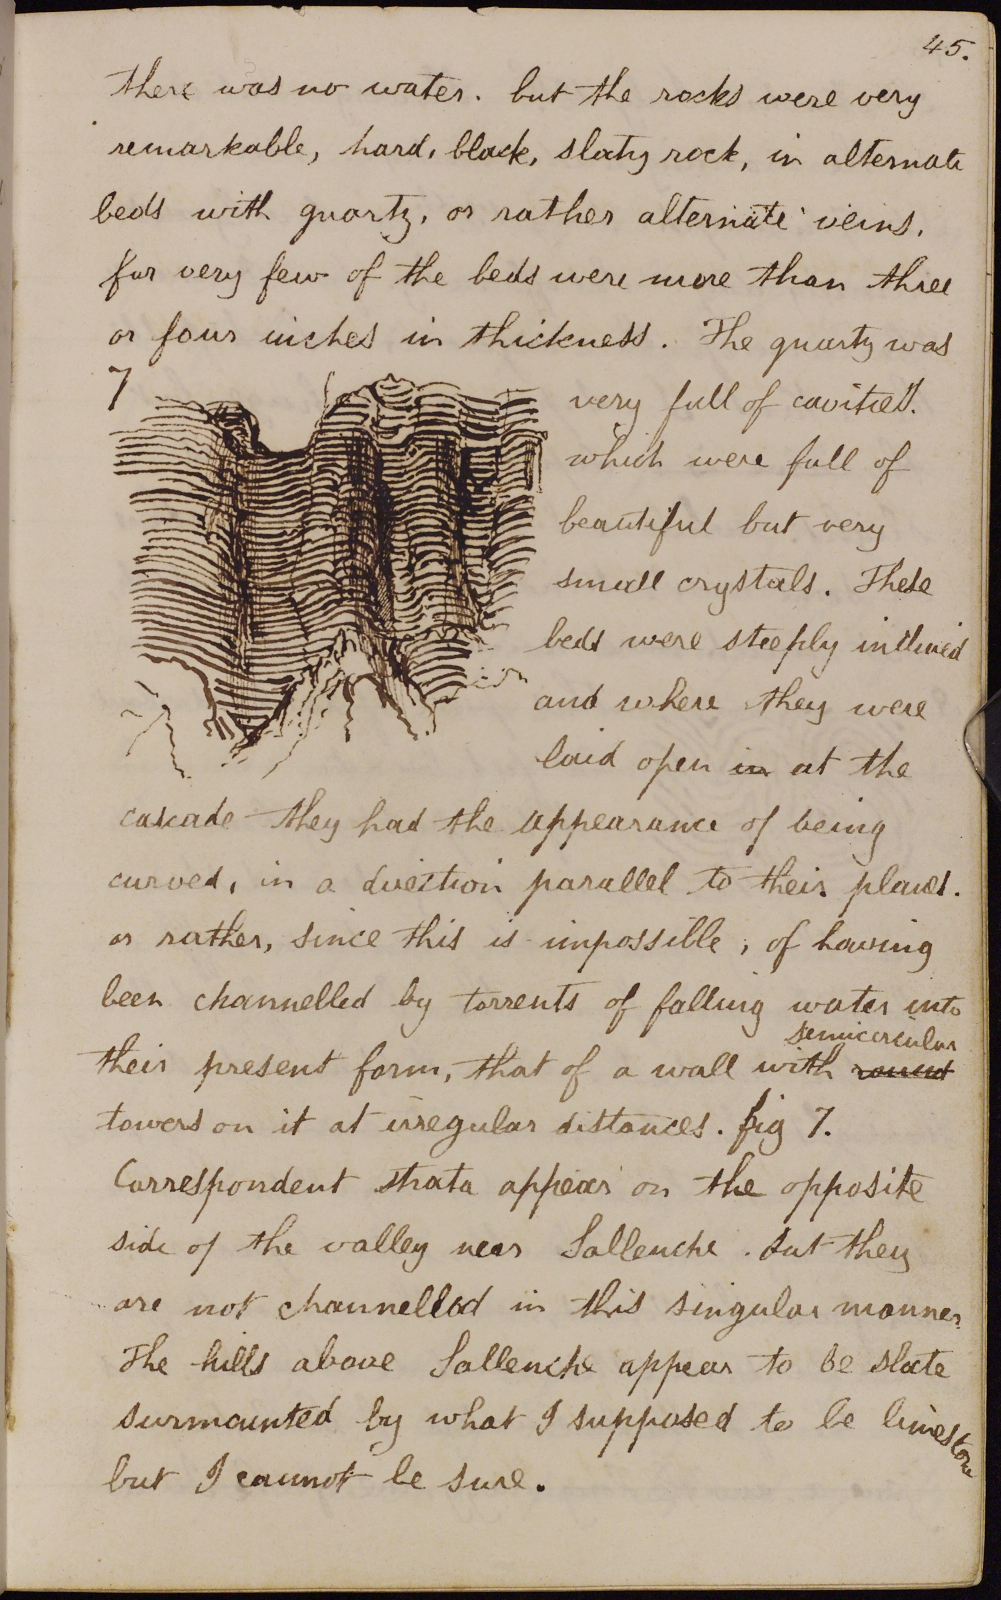 45.
there was no water. but the rocks were very
remarkable, hard, black, slaty rock, in alternate
beds with quartz, or rather alternate veins,
for very few of the beds were more than three
or four inches in thickness. The quartz was
7
very full of cavities.
which were full of
beautiful but very
small crystals. These
beds were steeply inclined
and where they were
laid open in at the
cascade they had the appearance of being
curved, in a direction parallel to their planes.
or rather, since this is impossible, of having
been channelled by torrents of falling water into
semicircular
their present form, that of a wall with round
towers on it at irregular distances. fig 7.
Correspondent strata appear on the opposite
side of the valley near Sallenche. but they
are not channelled in this singular manner.
The hills above Sallenche appear to be slate
surmounted by what I supposed to be limestone
but I cannot be sure.